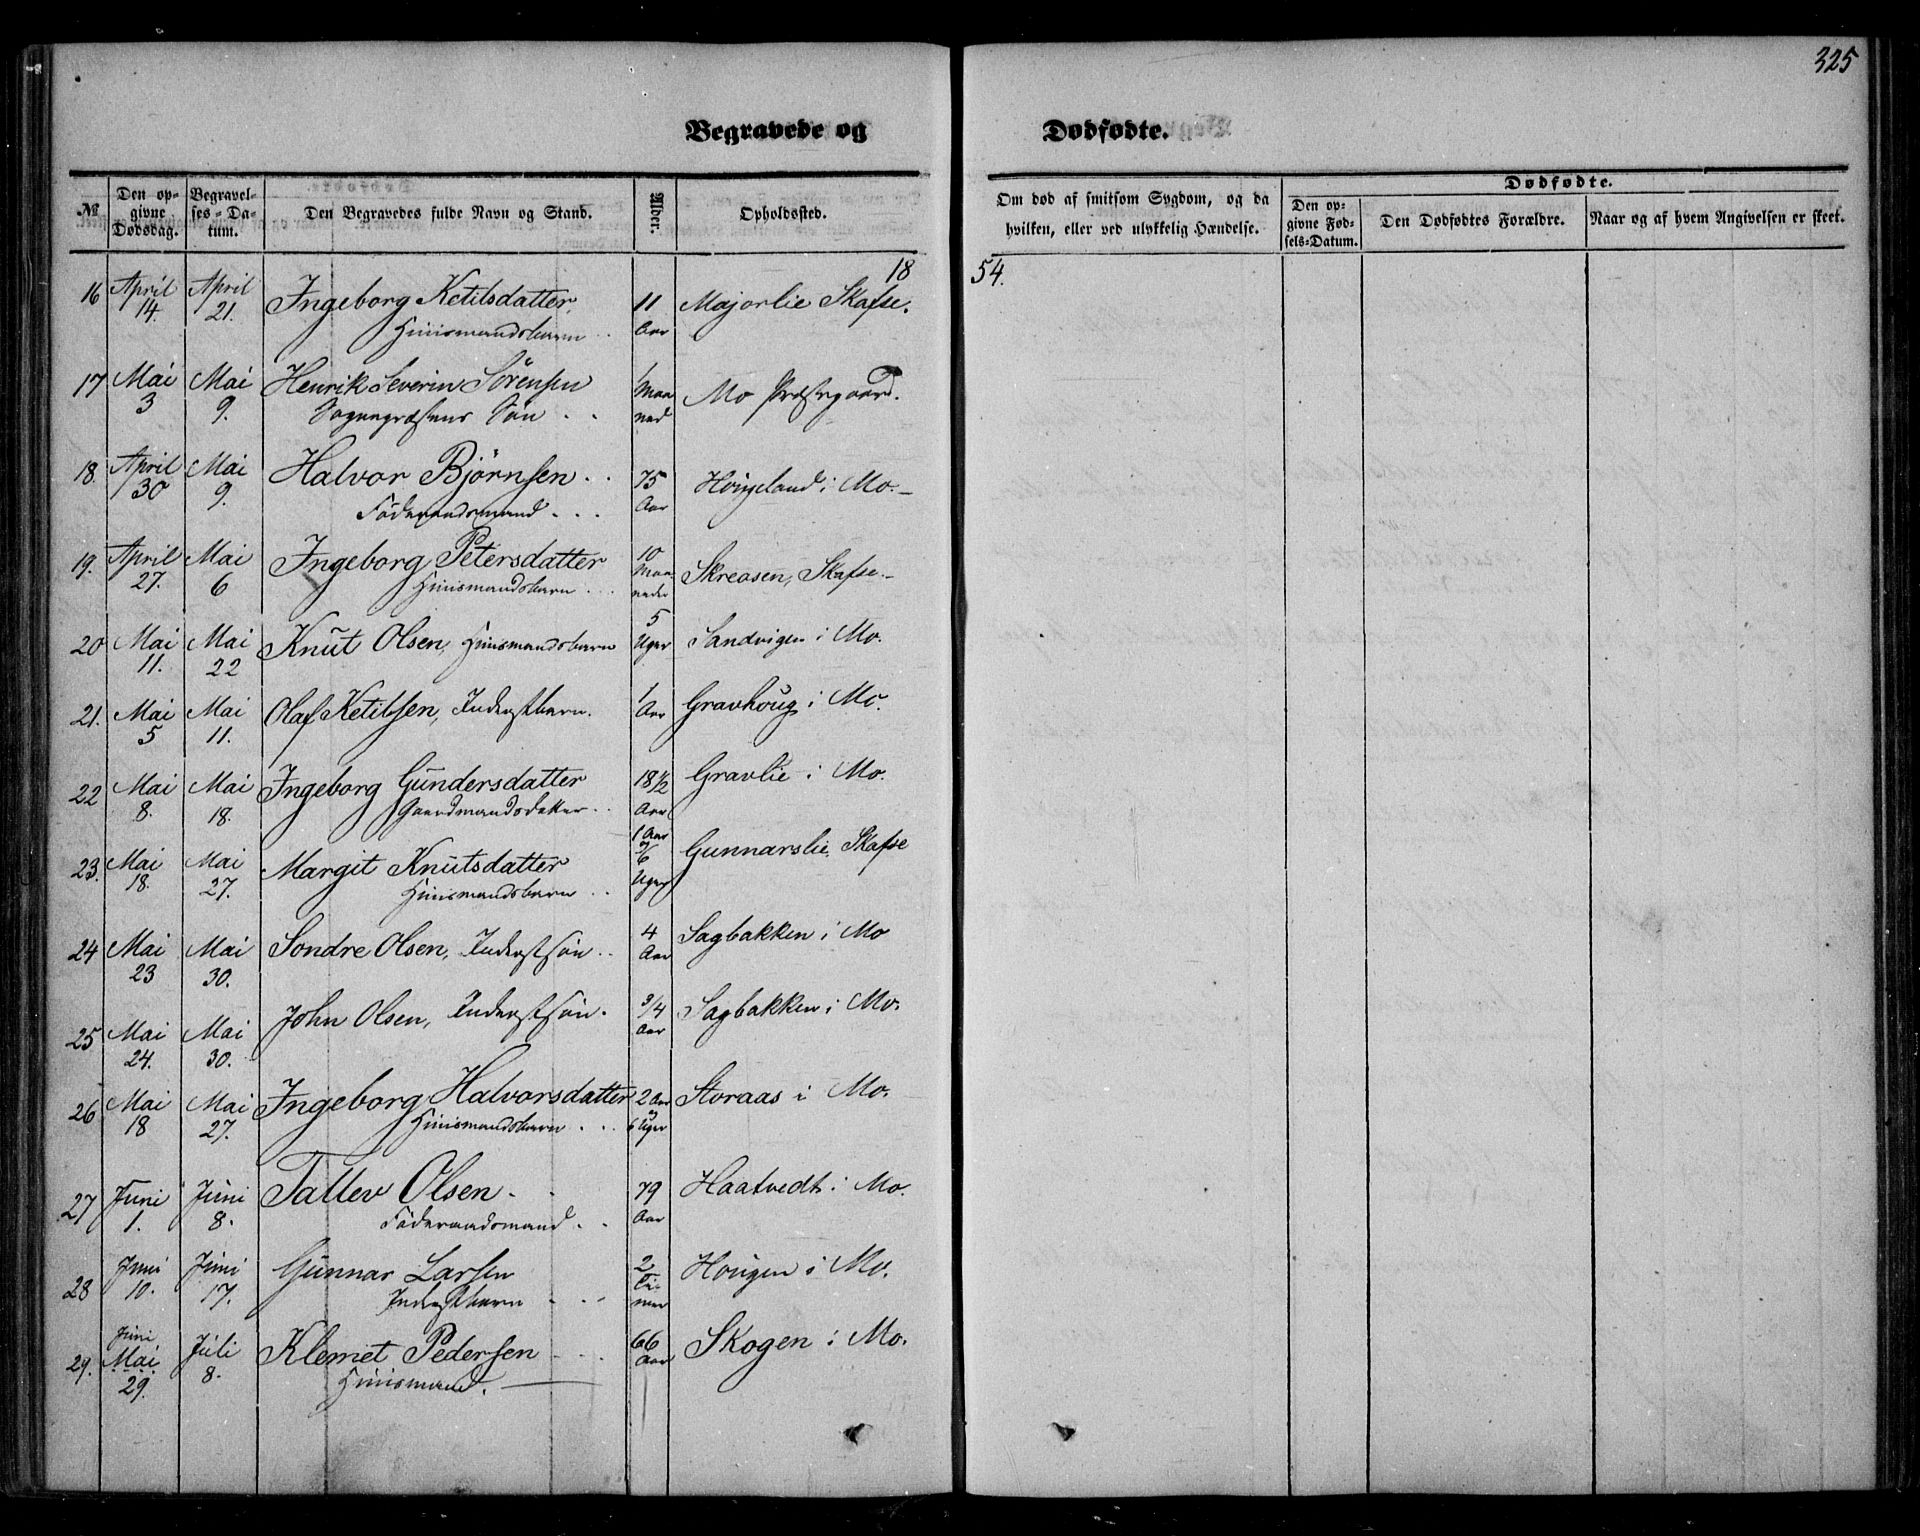 325
Begravede og Dødfødte.
№
Den opgivne Dødsdag.
Begravelses-Datum.
Den Begravedes fulde Navn og Stand.
Alder.
Opholdssted.
Om død af smitsom Sygdom, og da hvilken, eller ved ulykkelig Hændelse.
Dødfødte.
Den opgivne Fødsels-Datum.
Den Dødfødtes Forældre.
Naar og af hvem Angivelsen er skeet.
18 54.
16 April 14. April 21. Ingeborg Ketilsdatter, 11 Aar Majorlie Skafse.
Huusmandsbarn
17 Mai 3 Mai 9. Henrik Severin Sörensen 1 Maaned Mo Præstegaard.
Sognepræstens Søn
18. April 30 Mai 9. Halvor Bjørnsen 75 Aar Hougeland i Mo.
Föderaadsmand
19. April 27. Mai 6 Ingeborg Petersdatter 10 Maaneder Skreosen, Skafse.
Huusmandsbarn
20 Mai 11. Mai 22 Knut Olsen, Huusmandsbarn 5 Uger Sandvigen i Mo.
21. Mai 5 Mai 11. Olaf Ketilsen, Inderstbarn. 1 Aar Gravhoug i Mo.
22 Mai 8. Mai 18. Ingeborg Gundersdatter 18 1/2 Aar Gravlie i Mo.
Gaardmandsdatter
23. Mai 18. Mai 27. Margit Knutsdatter 1 Aar og 6 Uger Gunnarslie, Skafse
Huusmandsbarn
24 Mai 23 Mai 30. Sondre Olsen, Inderstsön 4 Aar Sagbakken i Mo
25 Mai 24. Mai 30. John Olsen, Inderstsön. 3/4 Aar Sagbakken i Mo.
26 Mai 18 Mai 27. Ingeborg Halvorsdatter 2 Aar og 6 Uger Storaas i Mo.
Huusmandsbarn
27 Juni 1. Juni 8. Tallev Olsen 79 Aar Haatvedt i Mo.
Föderaadsmand
28 Juni 10. Juni 17. Gunnar Larsen 2 Timer Hougen i Mo.
Inderstbarn
29. Juni Mai 29. Juli 8. Klemet Pedersen 66 Aar Skogen i Mo.
Huusmand.